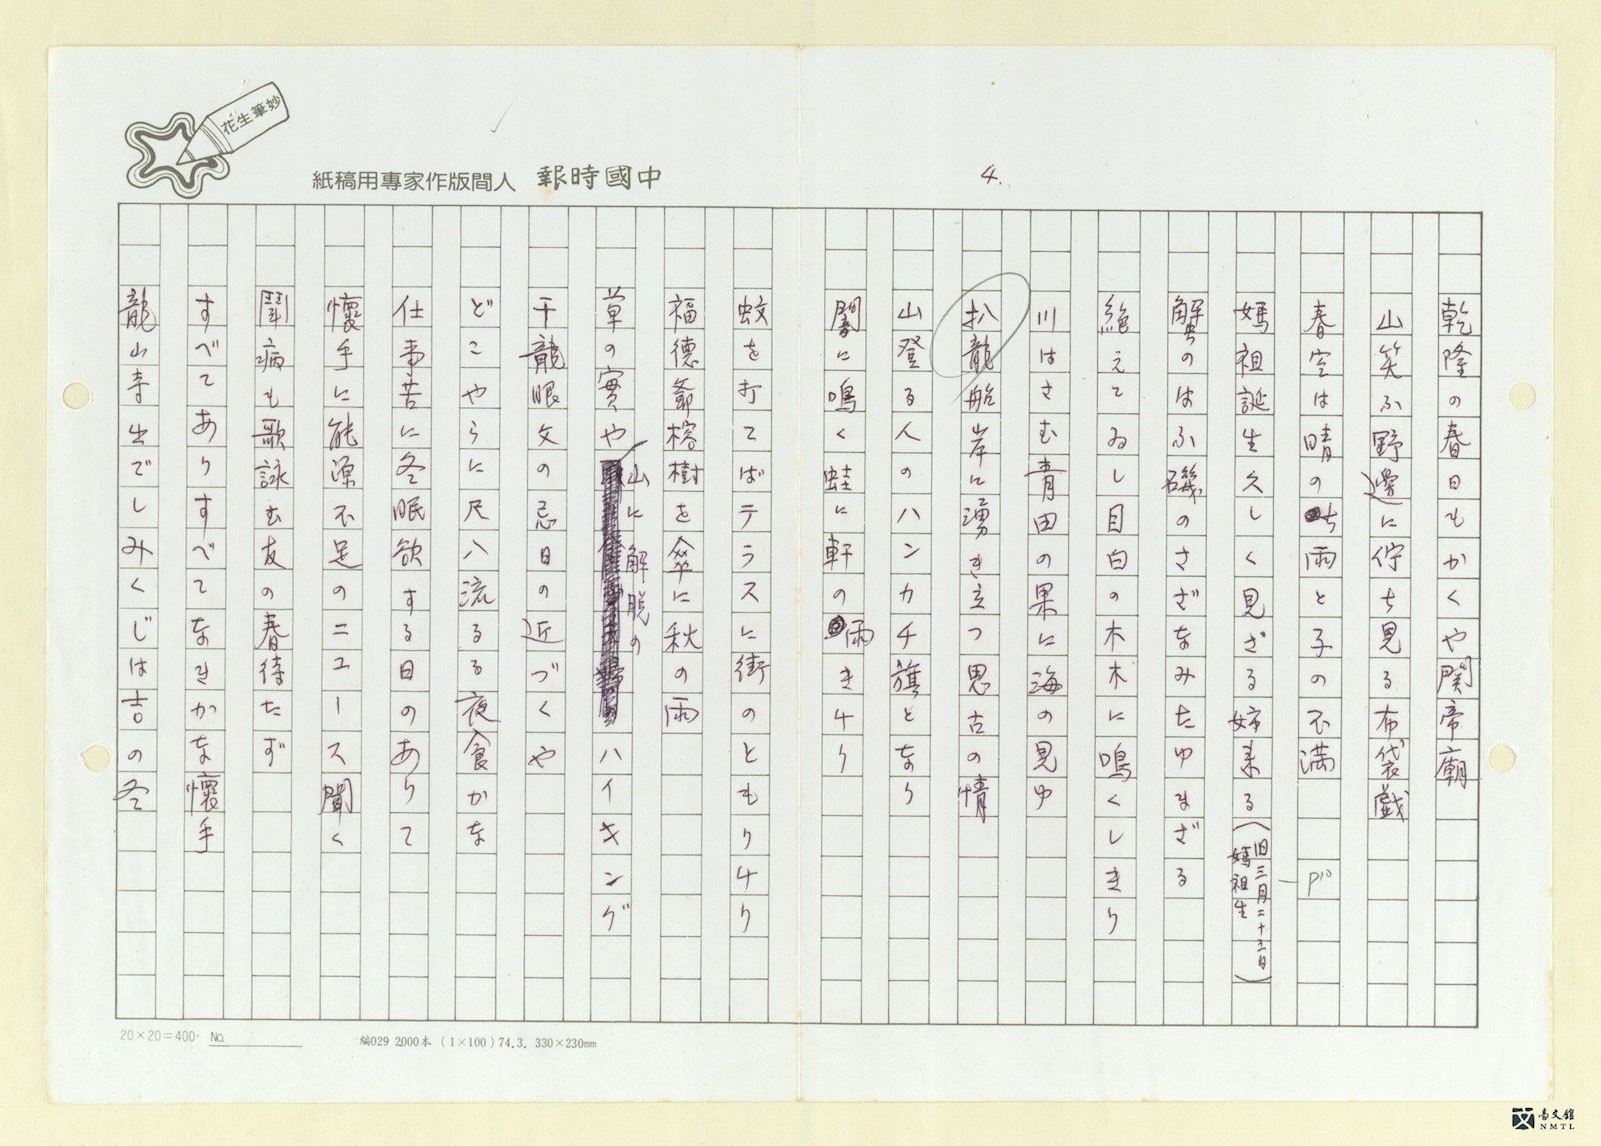 妙筆生花
中國時報 人間版作家專用稿紙
4.
乾隆の春日もかくや関帝廟
山笑ふ野邊に佇ち見る布袋戯
春空は晴の ち雨と子の不満
媽祖誕生久しく見ざる姉来る(旧三月二十三日媽祖生)
p10
蟹のはふ磯のさざなみたゆまざる
絶えてゐし目白の木木に鳴くしきり
川はさむ青田の果に海の見ゆ
扒龍船岸に湧き立つ思古の情
山登る人のハンカチ旗となり
闇に鳴く蛙に軒の雨きヰり
蚊を打てばテラスに街のともりヰり
福德爺榕樹を傘に秋の雨
草の實や山に解脱のハイキング
干龍眼父の忌日の近づくや
どこやらに尺八流るる夜食かな
仕事苦に冬眠欲する日のありて
懷手に能源不足のニユース聞く
鬪病も歌詠む友の春待たず
すべてありすべてなきかな懷手
龍山寺出でしみくじは吉の冬
20×20=400· No.
編029 2000本 (1×100) 74.3. 330×230mm
臺文館
NMTL